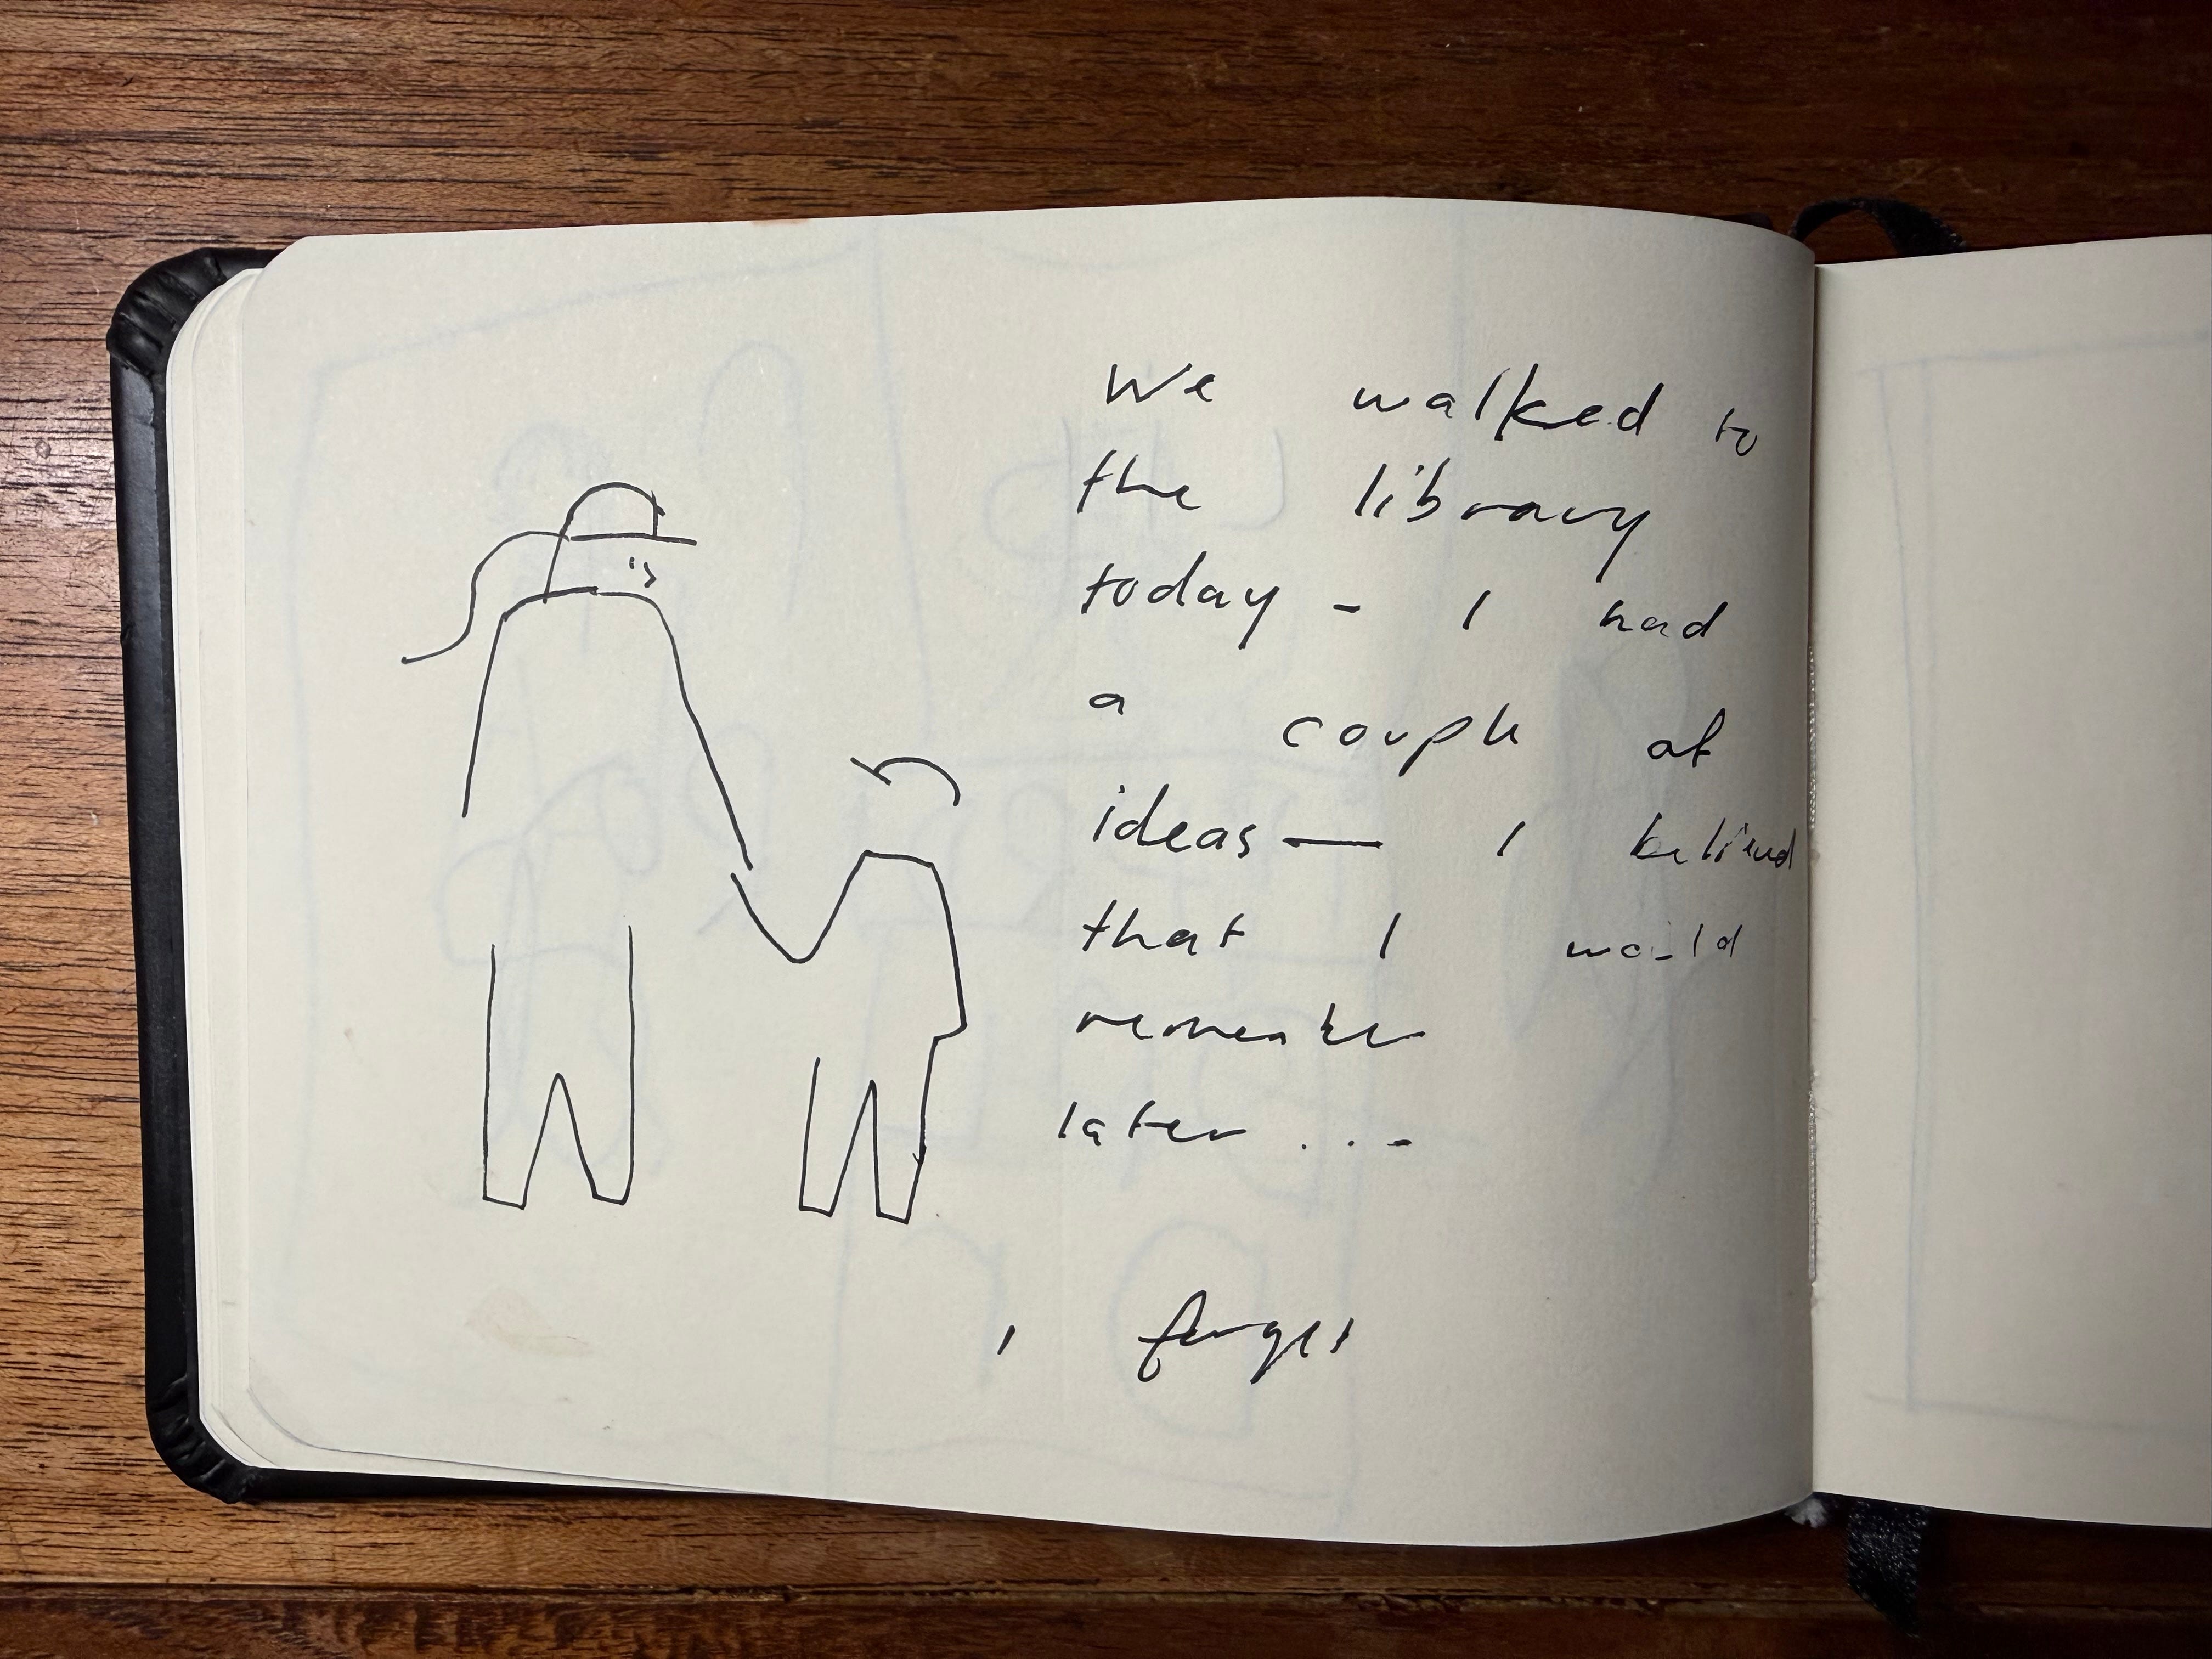 We walked to
the library
today - I had
a couple of
ideas — I believed
that I would
remember
later ...
I forget